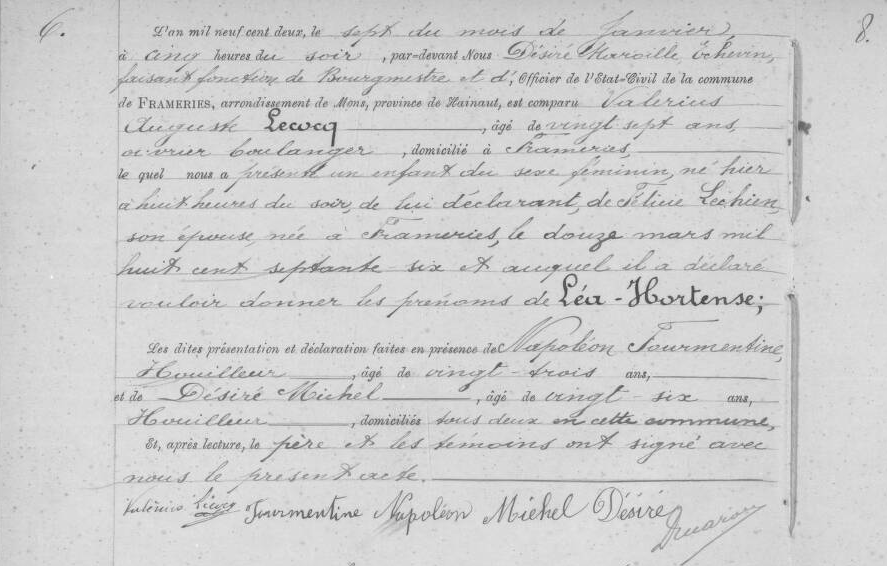 6.
8.
L'an mil neuf cent deux, le sept du mois de Janvier,
à cinq heures du soir, par-devant Nous Désiré Maroille, Échevin,
faisant fonction de Bourgmestre et d', Officier de l'Etat-Civil de la commune
de FRAMERIES, arrondissement de Mons, province de Hainaut, est comparu Valérius
Auguste Lecocq, âgé de vingt sept ans,
ouvrier boulanger, domicilié à Frameries
le quel nous a présenté un enfant du sexe féminin, né hier
à huit heures du soir, de lui déclarant, de Félicie Lechien,
son épouse, née à Frameries, le douze mars mil
huit cent septante-six et auquel il a déclaré
vouloir donner les prénoms de Léa-Hortense;
Les dites présentation et déclaration faites en présence de Napoléon Tourmentine,
Houilleur, âgé de vingt-trois ans,
et de Désiré Michel, âgé de vingt-six ans,
Houilleur, domiciliés tous deux en cette commune,
Et, après lecture, le père et les témoins ont signé avec
nous le présent acte.
Valérius Lecocq Tourmentine Napoléon Michel Désiré